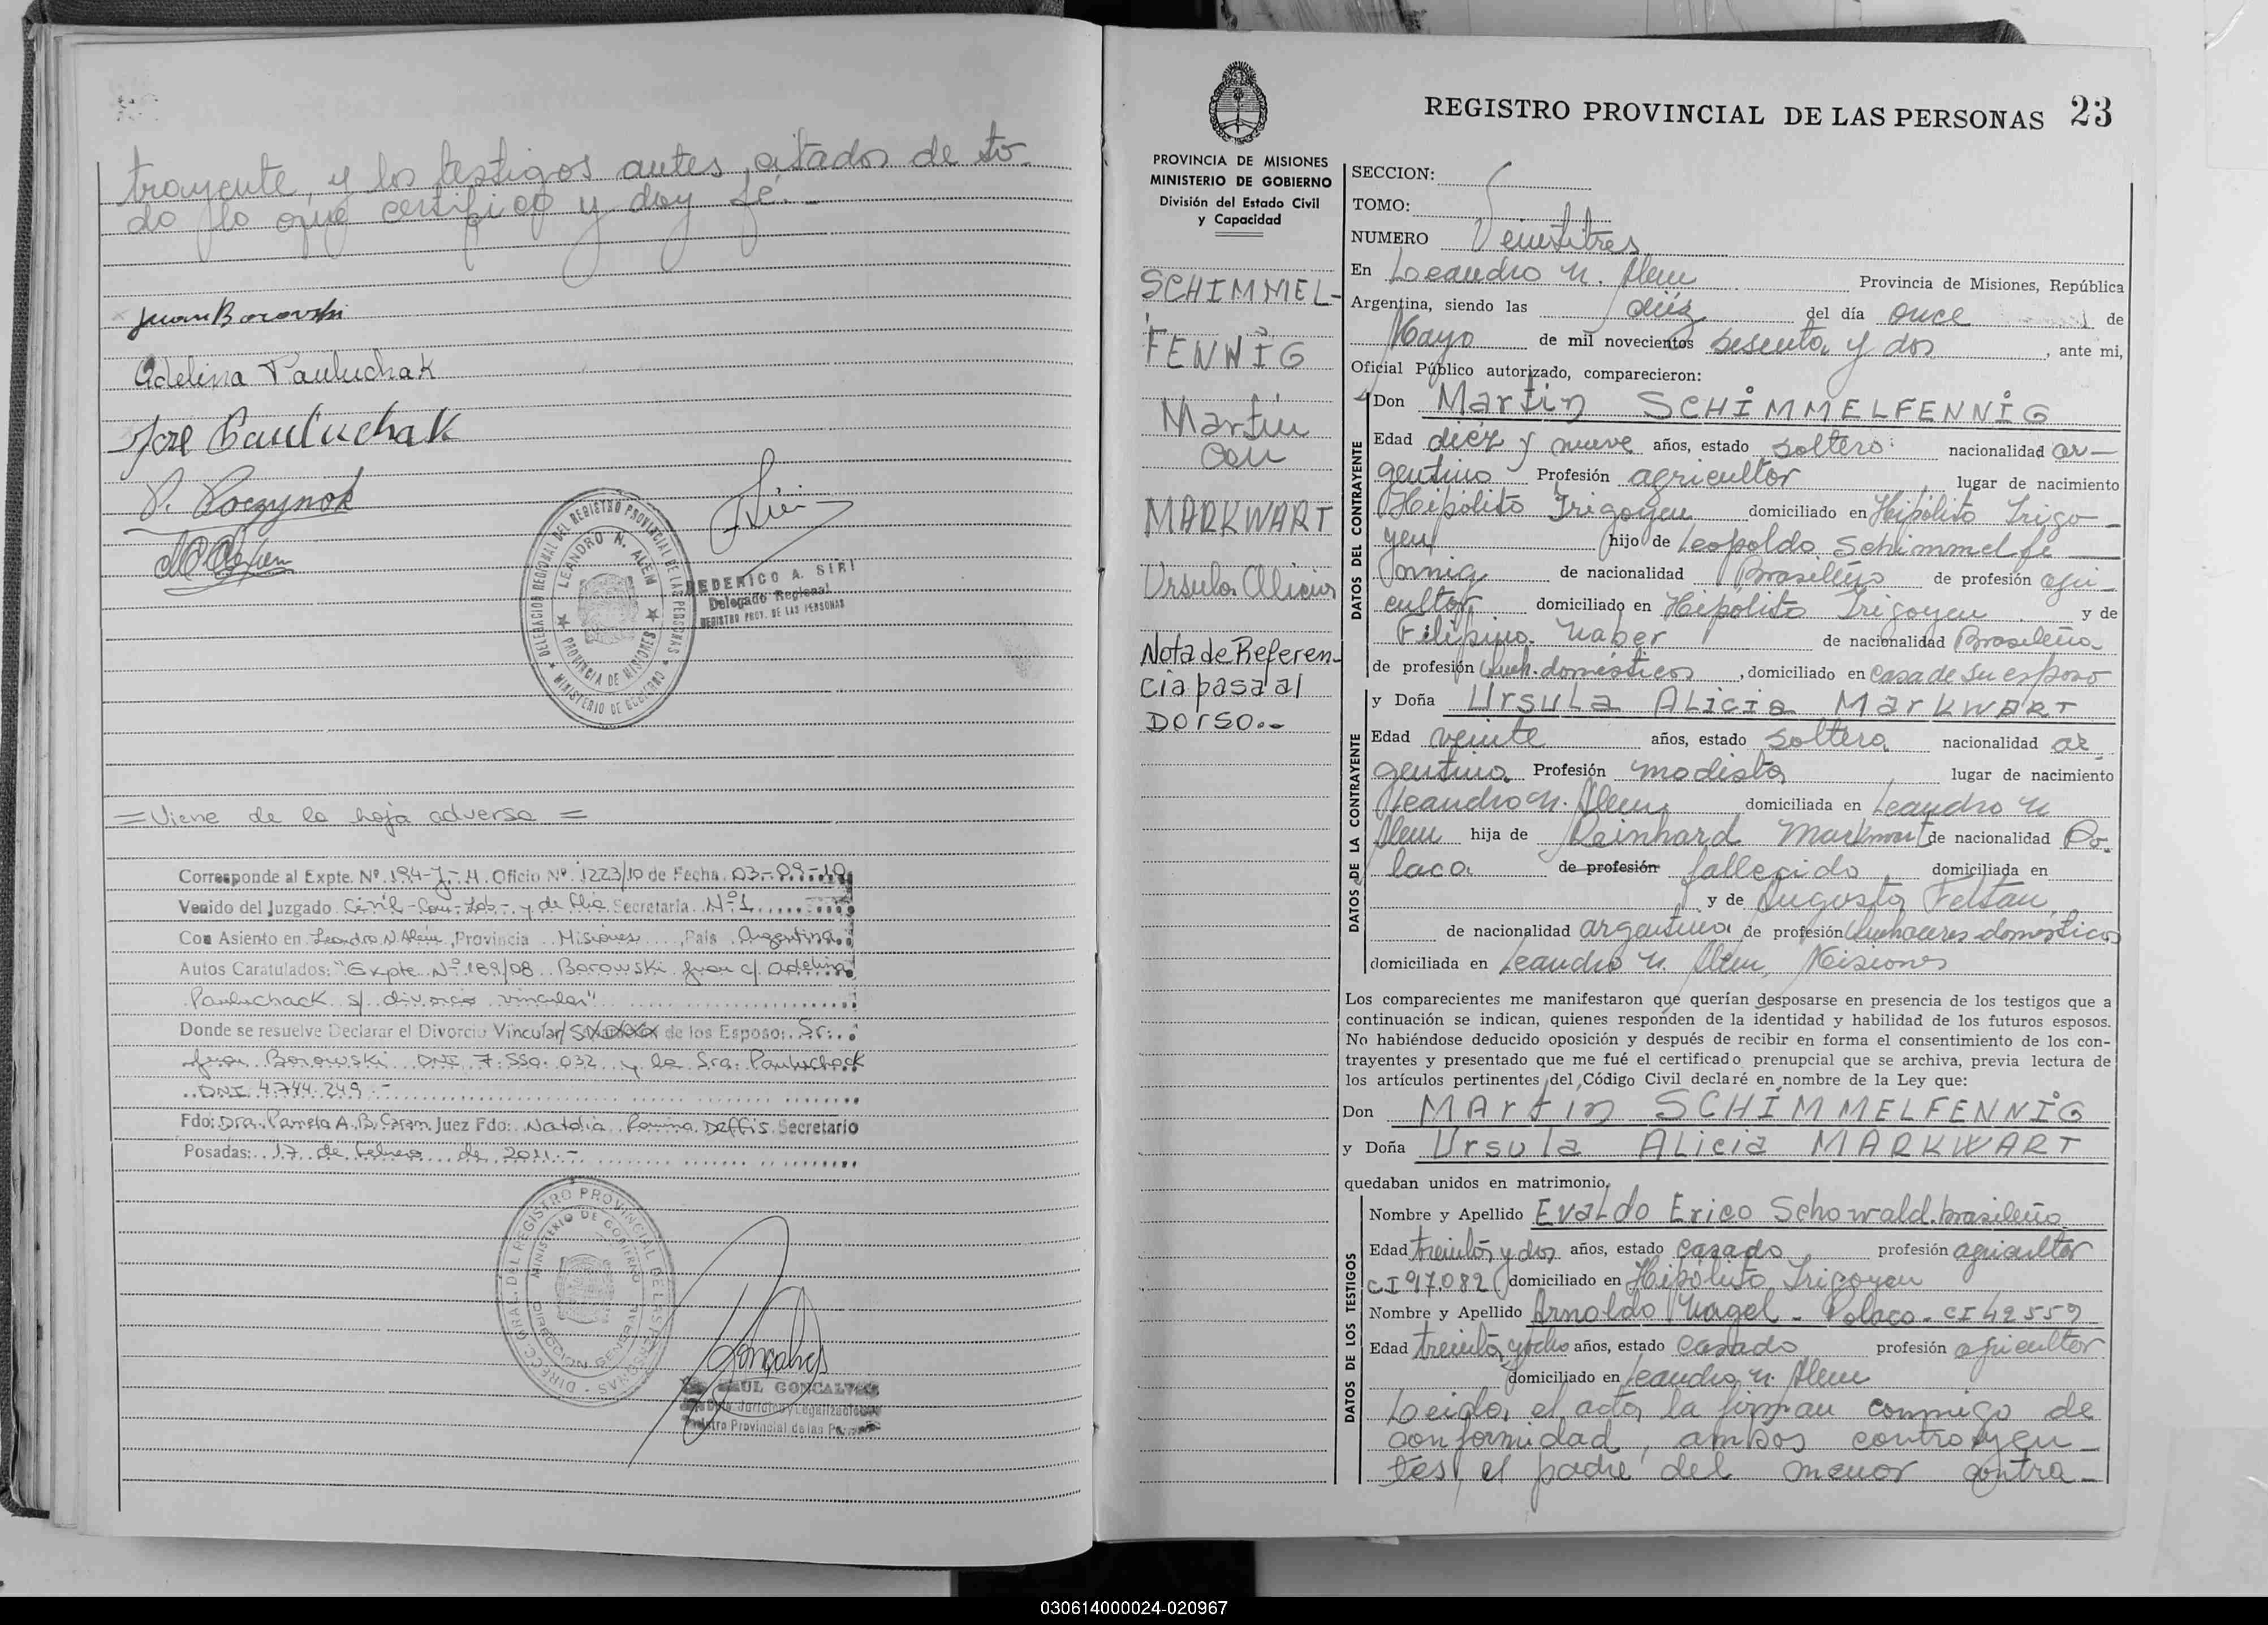 trayente, y los testigos antes citados de to-
do lo que certifico y doy fé.-
Juan Borovski
Adelina Pauluchak
José Pauluchak
P. Poczynok
DELEGACION REGIONAL DEL REGISTRO PROVINCIAL DE LAS PERSONAS
LEANDRO N. ALEM
PROVINCIA DE MISIONES
MINISTERIO DE GOBIERNO
FEDERICO A. SIRI
Delegado Regional
REGISTRO PROV. DE LAS PERSONAS
= Viene de la hoja adversa =
Corresponde al Expte. Nº 194-J-H. Oficio Nº 1223/10 de Fecha 03-09-10
Venido del Juzgado Civil-Com-Lab- y de Flia Secretaria Nº 1
Con Asiento en Leandro N Alem, Provincia Misiones, Pais Argentina.
Autos Caratulados: "Expte Nº 189/08 Borowski Juan c/ Adelina
Pauluchack s/ divorcio vincular"
Donde se resuelve Declarar el Divorcio Vincular/ de los Esposo: Sr:
Juan Borowski DNI 7.550.032 y la Sra: Pauluchack
DNI 4.744.249.-
Fdo: Dra. Pamela A. B. Caram Juez Fdo: Natalia Romina Deffis Secretario
Posadas: 17 de febrero de 2011.-
DIRECC. GRAL. DEL REGISTRO PROVINCIAL DE LAS PERSONAS
MINISTERIO DE GOBIERNO
DIRECCION GENERAL
RAUL GONCALVES
Registro Provincial de las Personas
REGISTRO PROVINCIAL DE LAS PERSONAS 23
PROVINCIA DE MISIONES
MINISTERIO DE GOBIERNO
División del Estado Civil
y Capacidad
SCHIMMEL-
FENNIG
Martin
con
MARKWART
Ursula Alicia
Nota de Referen-
cia pasa al
DORSO.-
SECCION:
TOMO:
NUMERO Veintitres
En Leandro N. Alem Provincia de Misiones, República
Argentina, siendo las diéz del día once de
Mayo de mil novecientos sesenta y dos, ante mi,
Oficial Público autorizado, comparecieron:
DATOS DEL CONTRAYENTE
Don Martin SCHIMMELFENNIG
Edad diéz y nueve años, estado soltero nacionalidad ar-
gentino Profesión agricultor, lugar de nacimiento
Hipólito Irigoyen domiciliado en Hipólito Irigo-
yen hijo de Leopoldo Schimmelfe-
nnig de nacionalidad Brasileño de profesión agri-
cultor domiciliado en Hipólito Irigoyen y de
Filipina Naber de nacionalidad Brasileña
de profesión Queh. domésticos, domiciliado en casa de su esposo
DATOS DE LA CONTRAYENTE
y Doña Ursula Alicia Markwart
Edad veinte años, estado soltera nacionalidad ar-
gentina Profesión modista, lugar de nacimiento
Leandro N. Alem domiciliada en Leandro N
Alem hija de Reinhard Markwart de nacionalidad Po-
laca de profesión fallecido domiciliada en
y de Augusta Feltan
de nacionalidad argentina de profesión Quehaceres domésticos
domiciliada en Leandro N. Alem, Misiones
Los comparecientes me manifestaron que querían desposarse en presencia de los testigos que a
continuación se indican, quienes responden de la identidad y habilidad de los futuros esposos.
No habiéndose deducido oposición y después de recibir en forma el consentimiento de los con-
trayentes y presentado que me fué el certificado prenupcial que se archiva, previa lectura de
los artículos pertinentes del Código Civil declaré en nombre de la Ley que:
Don Martin SCHIMMELFENNIG
y Doña Ursula Alicia MARKWART
quedaban unidos en matrimonio.
DATOS DE LOS TESTIGOS
Nombre y Apellido Evaldo Erico Schowald. brasileño
Edad treinta y dos años, estado casado profesión agricultor
CI 97.082 domiciliado en Hipólito Irigoyen
Nombre y Apellido Arnoldo Nagel - Polaco - CI 42559
Edad treinta y ocho años, estado casado profesión agricultor
domiciliado en Leandro N. Alem
Leida el acta, la firman conmigo de
conformidad, ambos contrayen-
tes, el padre del menor contra-
030614000024-020967